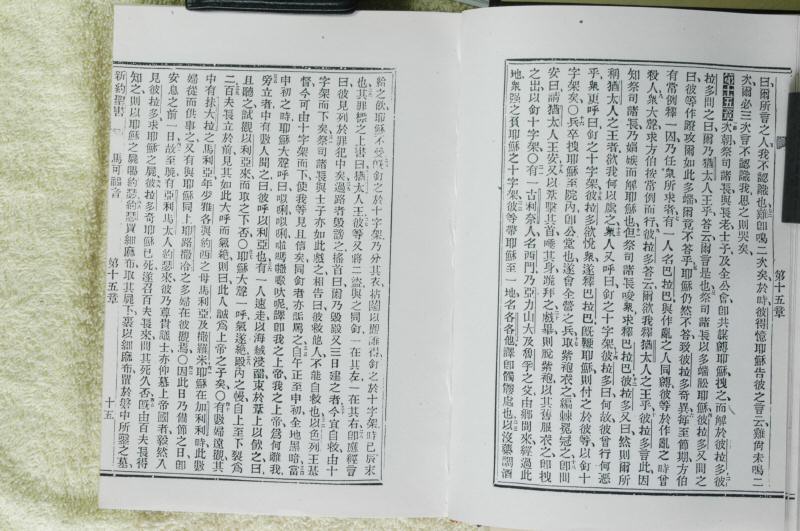 第十五章
曰爾所言之人我不認識也雞卽鳴二次矣於時彼得憶耶穌告彼之言云雞尚未鳴二
次爾必三次言不認識我思之則哭矣
第十五章 次朝祭司諸長與長老士子及全公會卽共謀縛耶穌拽之而解於彼拉多彼
拉多問之曰爾乃猶太人王乎答云爾言是也祭司諸長以多端訟耶穌彼拉多又問之
曰彼等作證攻爾如此多端爾竟不答乎耶穌仍然不答致彼拉多奇異每至節期方伯
有常例釋一囚乃任衆所求者有一人名巴拉巴與作亂之人同縛彼等於作亂之時曾
殺人衆大聲求方伯按常例而行彼拉多答云爾欲我釋猶太人之王乎彼拉多言此因
知祭司諸長乃嫉妬而解耶穌也但祭司諸長唆衆求釋巴拉巴彼拉多又曰然則爾所
稱猶太人之王者欲我何以處之衆人又呼曰釘之十字架彼拉多曰何故彼曾行何惡
乎衆更呼曰釘之十字架彼拉多欲悅衆遂釋巴拉巴旣鞭耶穌則付之於彼等以釘十
字架矣〇兵卒拽耶穌至院內卽公堂也遂會全營之兵取紫袍衣之編棘冕冠之卽問
安曰請猶太人王安又以葦擊其首唾其身跪拜之戲畢則脫紫袍以其舊服衣之卽拽
之出以釘十字架〇有一古利奈人名西門乃亞力山大及魯孚之父由鄉間來經過此
地衆强之負耶穌之十字架彼等帶耶穌至一地名各各他譯卽髑髏處也以沒藥調酒
給之飲耶穌不受旣釘之於十字架乃分其衣拈鬮以觀誰得釘之於十字架時已辰末
也其罪標之上書曰猶太人王彼等又將二盜與之同釘一在其左一在其右卽應經言
曰彼見列於罪犯中矣過路者毀謗之搖首曰爾乃毀殿又三日建之者今宜自救由十
字架而下矣祭司諸長與士子亦如此戲之相告曰彼救他人不能自救也以色列王基
督今可由十字架而下使我等見且信矣同釘者亦詬罵之自午正至申初全地黑暗當
申初之時耶穌大聲呼曰
旁立者中有數人聞之曰彼呼以利亞也有一人速走以海絨浸醋束於葦上以飲之曰
且聽之試觀以利亞來而取之下否〇耶穌大聲一呼氣遂絕殿內之幔自上至下裂爲
二百夫長立於前見其如此大呼而氣絕則曰此人誠爲上帝之子矣〇有數婦遠觀其
中有抹大拉之馬利亞年少雅各與約西之母馬利亞及撒羅米耶穌在加利利時此數
婦從而供事之又有與耶穌同上耶路撒冷之多婦在彼觀焉〇因此日乃備節之日卽
安息之前一日故至晚有亞利馬太人約瑟來彼乃尊貴議士亦仰慕上帝國者毅然入
見彼拉多求耶穌之屍彼拉多奇耶穌已死遂召百夫長來問其死久否旣由百夫長得
知之則以耶穌之屍賜約瑟約瑟買細麻布取其屍下裹以細麻布置於磐中所鑿之墓
新約聖書 馬可福音 第十五章 十五